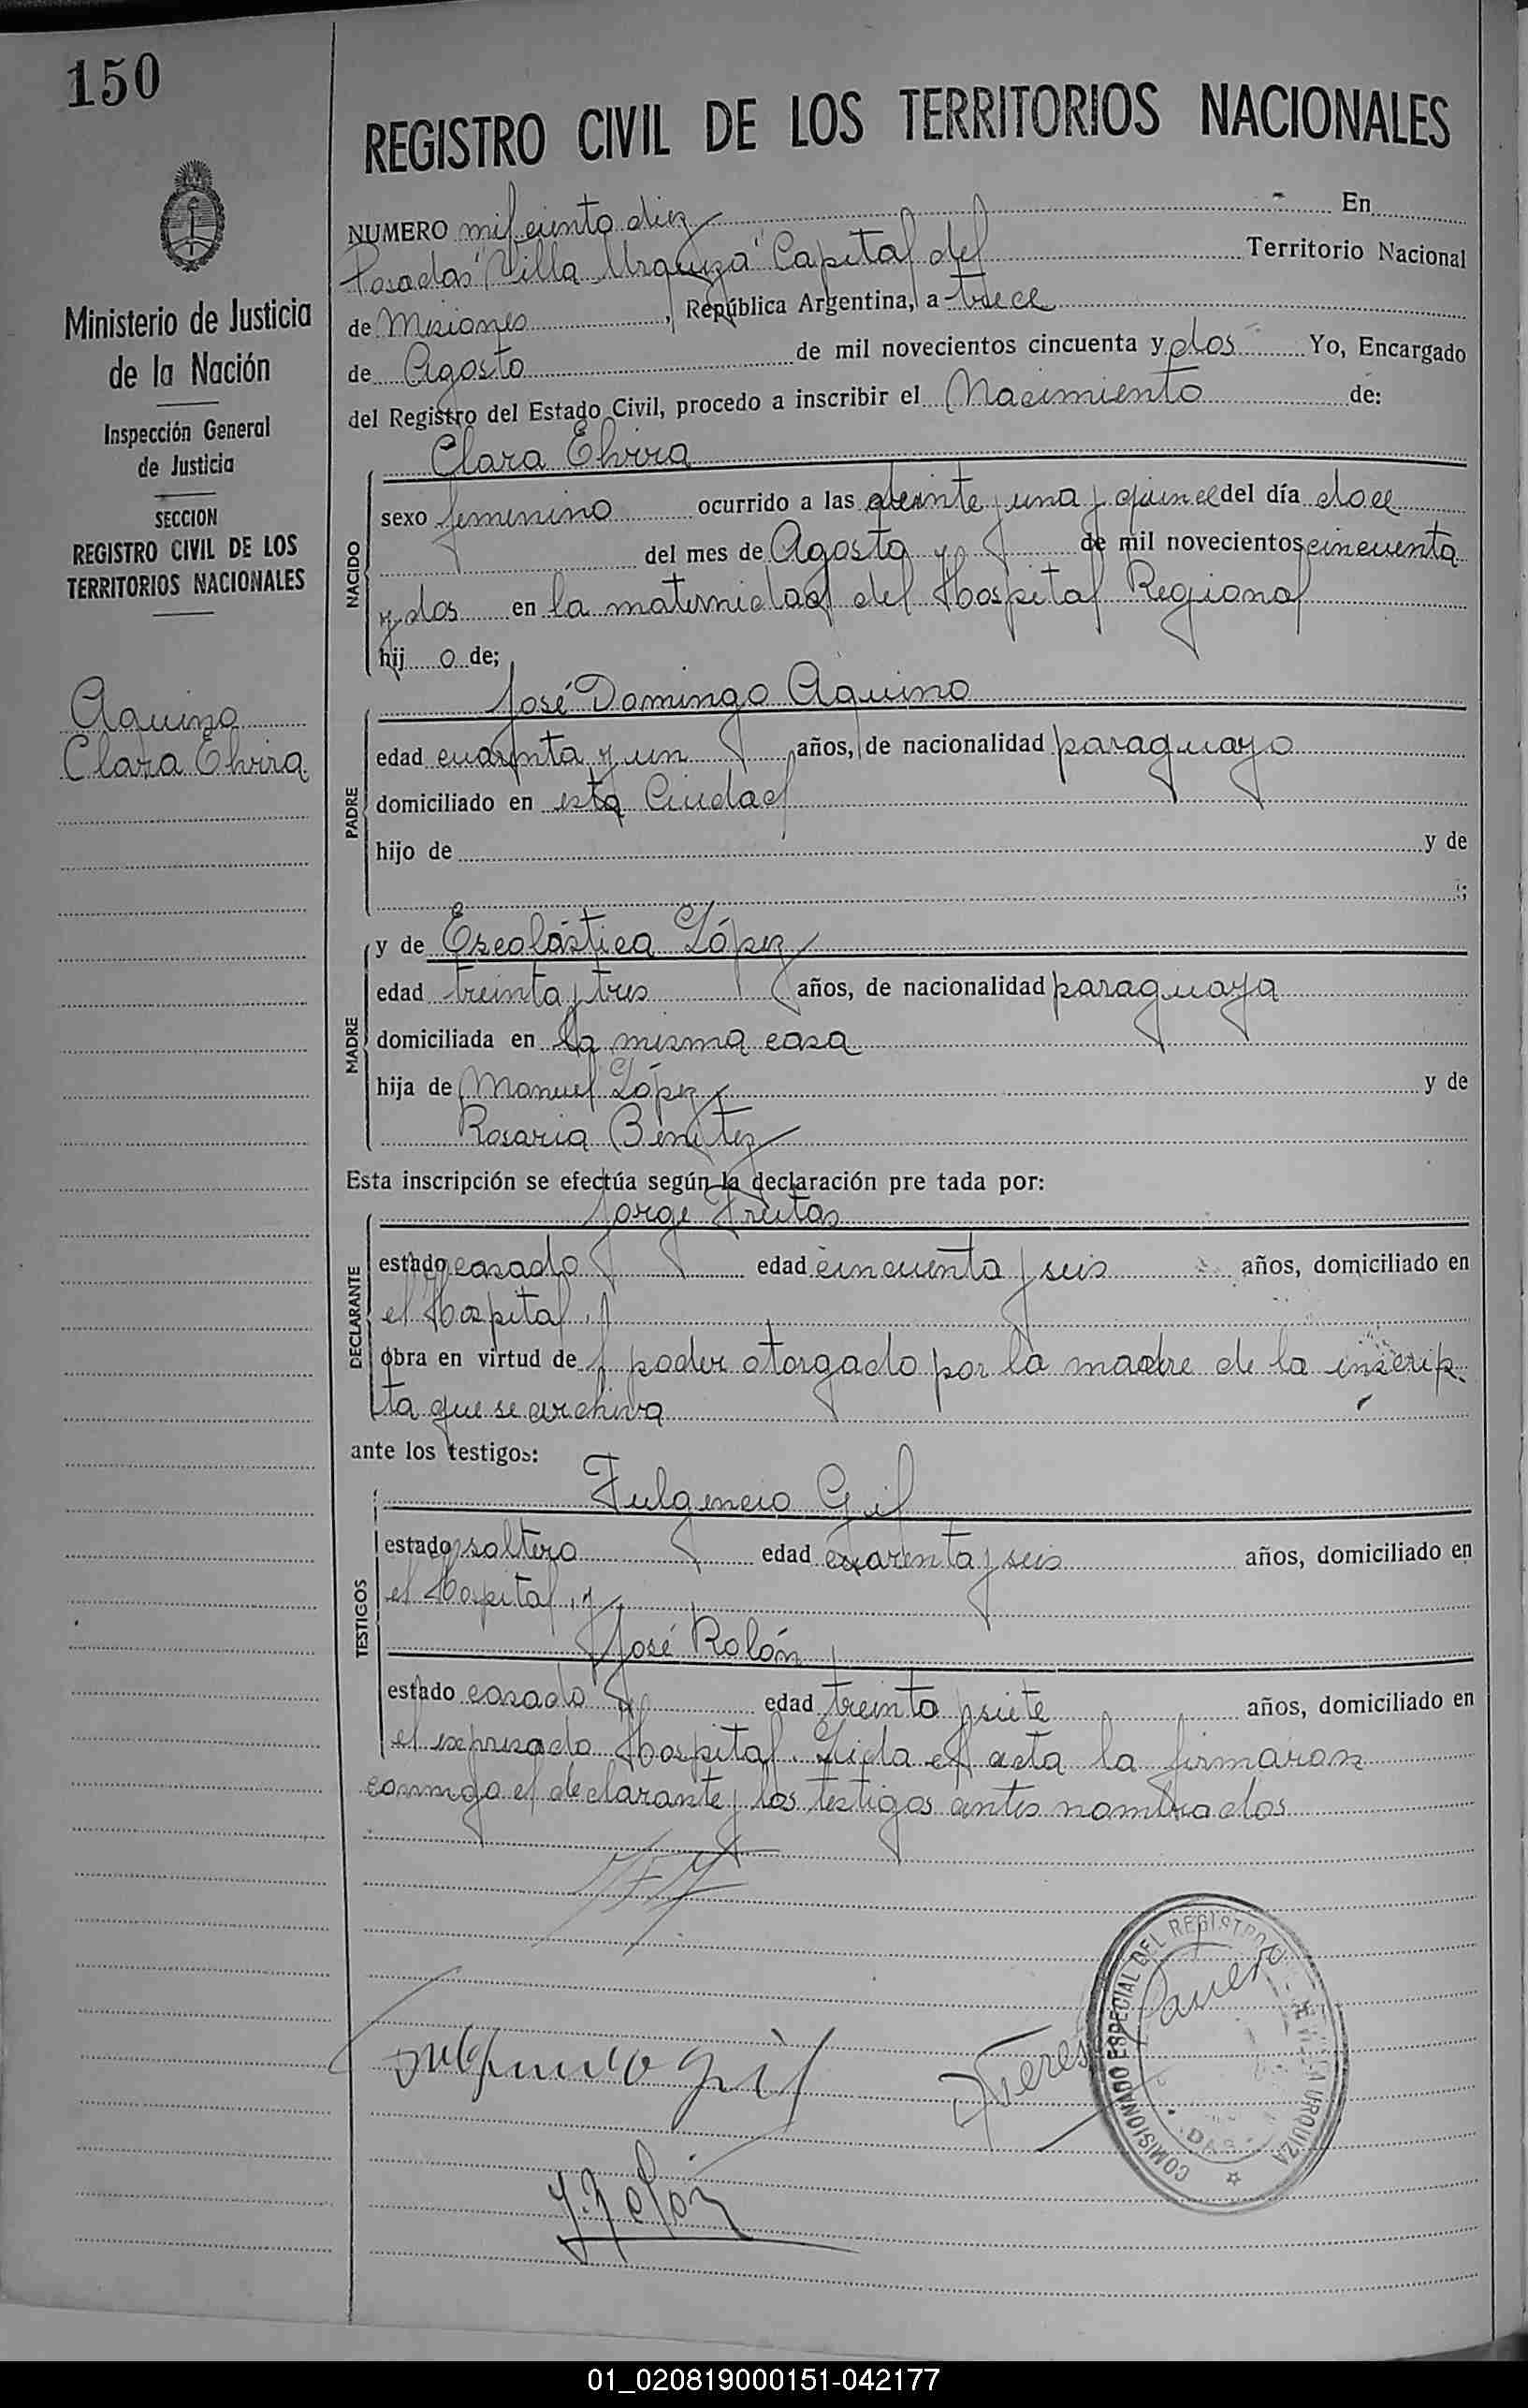 150
REGISTRO CIVIL DE LOS TERRITORIOS NACIONALES
NUMERO mil ciento diez En
Posadas "Villa Urquiza" Capital del Territorio Nacional
de Misiones, República Argentina, a trece
de Agosto de mil novecientos cincuenta y dos Yo, Encargado
del Registro del Estado Civil, procedo a inscribir el Nacimiento de:
Ministerio de Justicia
de la Nación
Inspección General
de Justicia
SECCION
REGISTRO CIVIL DE LOS
TERRITORIOS NACIONALES
Aquino
Clara Elvira
NACIDO
Clara Elvira
sexo femenino ocurrido a las veinte y una y quince del día doce
del mes de Agosto de mil novecientos cincuenta
y dos en la maternidad del Hospital Regional
hij o de;
PADRE
José Domingo Aquino
edad cuarenta y un años, de nacionalidad paraguayo
domiciliado en esta Ciudad
hijo de y de
;
MADRE
y de Escolástica López
edad treinta y tres años, de nacionalidad paraguaya
domiciliada en la misma casa
hija de Manuel López y de
Rosaria Benitez
Esta inscripción se efectúa según la declaración pre tada por:
DECLARANTE
Jorge Freitas
estado casado edad cincuenta y seis años, domiciliado en
el Hospital
obra en virtud de poder otorgado por la madre de la inscrip-
ta que se archiva
ante los testigos:
TESTIGOS
Fulgencio Gil
estado soltero edad cuarenta y seis años, domiciliado en
el Hospital, y
José Rolón
estado casado edad treinta y siete años, domiciliado en
el expresado Hospital. Leida el acta la firmaron
conmigo el declarante y los testigos antes nombrados
Fulgencio Gil
J. Rolón
COMISIONADO ESPECIAL DEL REGISTRO
VILLA URQUIZA
01_020819000151-042177